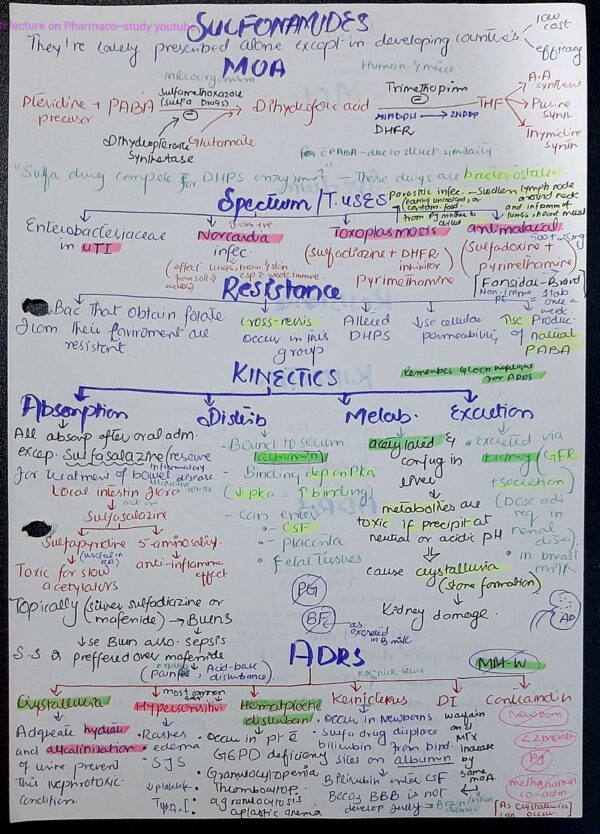 lecture on Pharmaco-study youtube
SULFONAMIDES
They're rarely prescribed alone except in developing countries
low cost
efficacy
MOA
microorganism
Human & mice
Pteridine + PABA
precursor
Sulfamethoxazole
(Sulfa Drugs)
Dihydrofolic acid
Trimethoprim
2NADPH
2NADP
DHFR
THF
A.A synthesis
Purine Synth
Thymidine Synth
Dihydropteroate
Synthetase
Glutamate
PABA - due to struct. similarity
"Sulfa drug compete for DHPS enzyme" - These drugs are bacteriostatic
Spectrum / T. USES
Enterobacteriaceae
in UTI
gram +ve
Nocardia
infec.
Toxoplasmosis
(sulfadiazine + DHFR
inhibitor
Pyrimethamine
Parasitic infec. - Swollen lymph node
around neck
antimalarial
(Sulfadoxine +
pyrimethamine)
[Fansidar - Brand]
1 tab
once a
week
Resistance
Bac. that obtain folate
from their environment are
resistant
cross-resis
occur in this
group
Altered
DHPS
↓se cellular
permeability
↑se Produc.
of natural
PABA
KINECTICS
Remember green highlights
for ADRs
Absorption
All absorp after oral adm.
excep. Sulfasalazine (reserve
for treatment of bowel disease
inflammatory
Local intestin flora
act on
Sulfasalazine
Sulfapyridine
(useful in RA)
5-aminosalicy.
Toxic for slow
acetylators
anti-inflamm
effect
Topically (silver sulfadiazine or
mafenide) → Burns
↓se Burn asso. sepsis
S.S is preffered over mafenide
(pain, Acid-base
disturbance)
Distrib
- Bound to serum
albumin
- Binding dep on pka
(↓ pka = ↑ binding)
- Can enter
- CSF
- placenta
- Fetal Tissues
PG
BF
as
excreted
in B.milk
Metab.
acetylated &
conjug in
liver
metabolites are
toxic if precipit at
neutral or acidic pH
cause crystalluria
(stone formation)
Kidney damage.
Excretion
• Excreted via
kidney (GFR
+ secretion)
(Dose adj
req. in
renal
dis.)
• in breast
milk
ADRS
Crystalluria
Adquate hydrat
and alkalinization
of urine prevent
this nephrotoxic
condition.
most common
Hypersensitivi
• Rashes
• edema
SJS
Hematopioetic
disturban.
• Occur in pt c̄
G6PD deficiency
• Granulocytopenia
• Thrombocytop.
• agranulocytosis
aplastic anemia
Kernicterus
• Occur in Newborns
• Sulfa drug displace
bilirubin from bind.
sites on albumin
Bilirubin enter CSF
Becoz BBB is not
develop fully
DI
warfarin
and
MTX
increase
by
same
MOA
MM-W
Contraindin
Newborn
<2 month
Pg
methenamine
co-adm
[As Crystalluria
can occur]